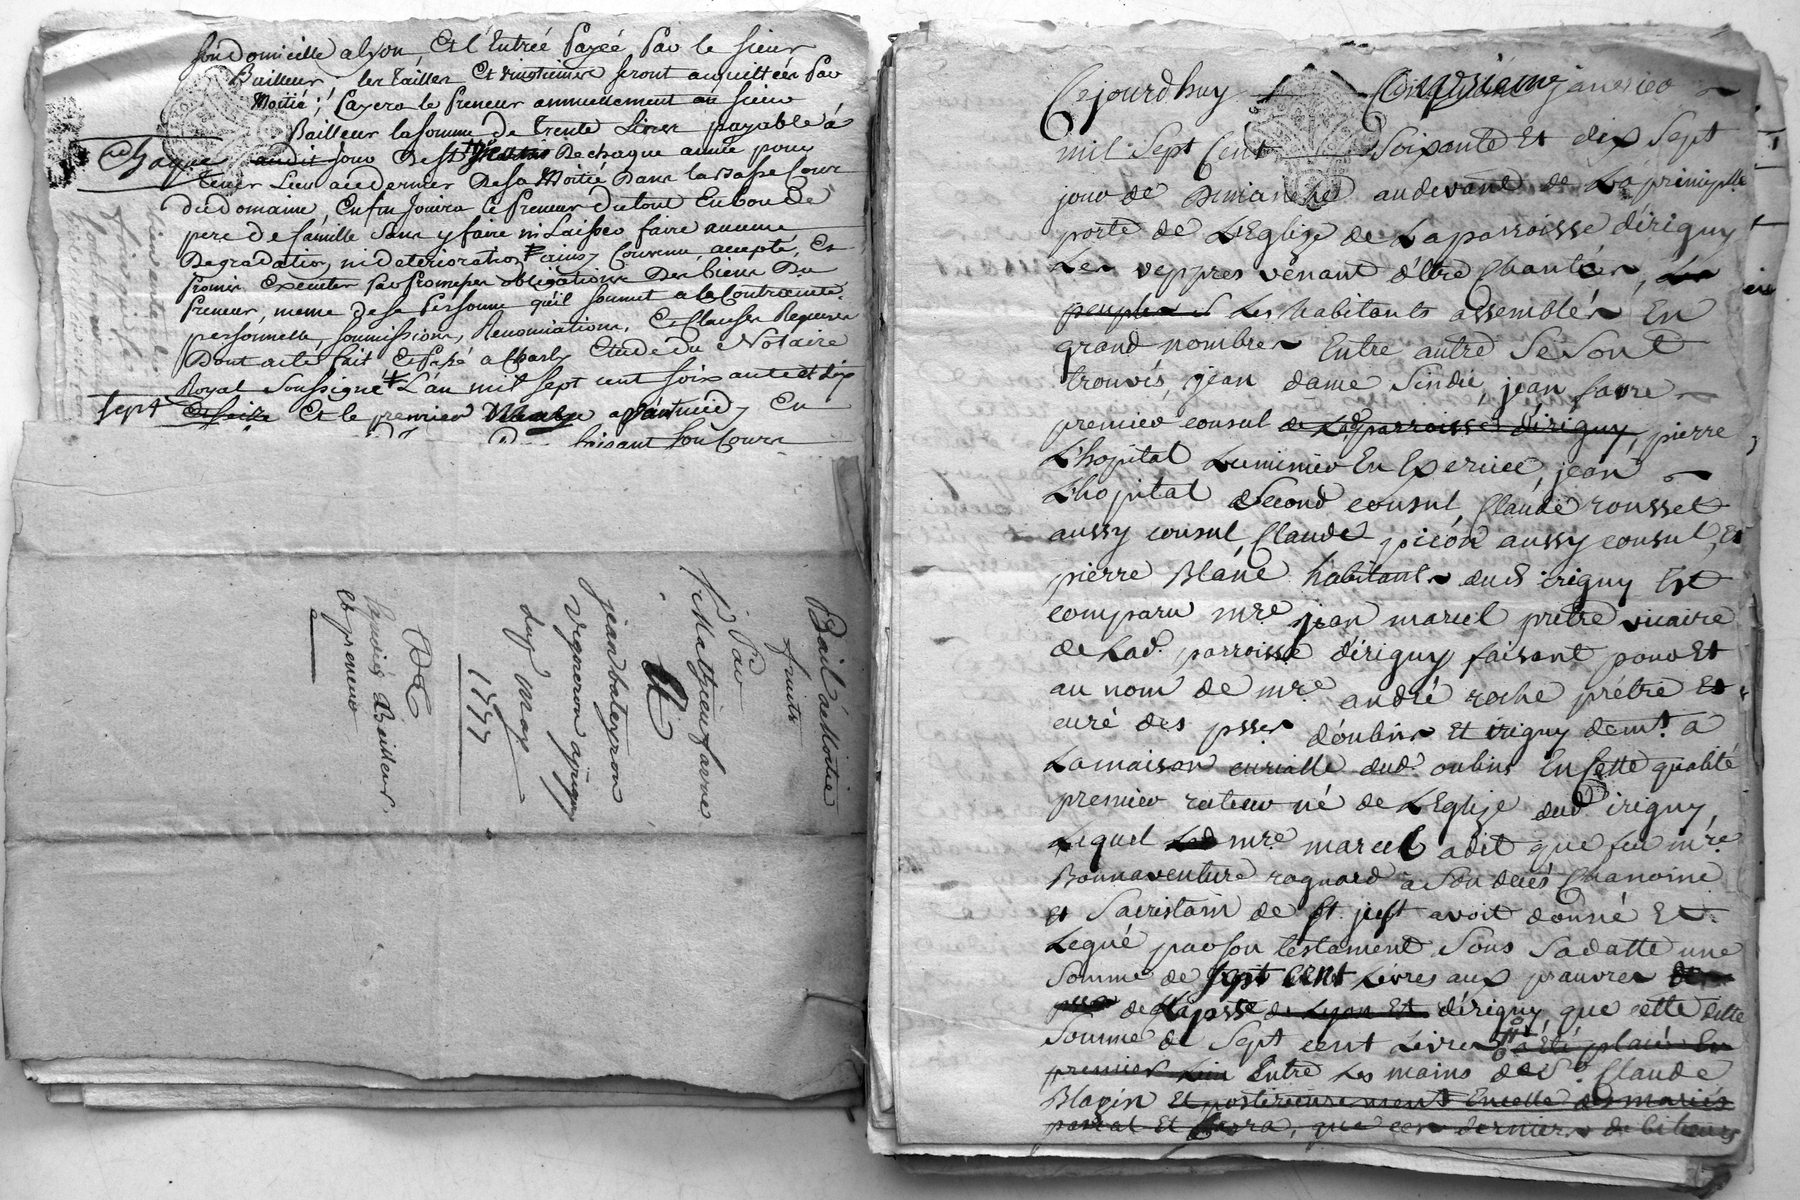 son domicille a lyon, Et l'Entreé payeé par le sieur
Bailleur les tailles Et vingtiemes seront acquittées par
Moitié; payera le preneur annuellement au sieur
Bailleur la somme de trente Livres payable á
chaque audit jour de st De chaque année pour
tenir Lieu audernier De sa Moitié Dans la Basse Cour
du domaine, Enfin jouira le preneur du tout En bon De
pere De famille sans y faire ni Laisser faire aucune
Degradation, ni deterioration ainsy Convenu, accepté, Et
promis Executer par promesses obligations Des biens Du
preneur, meme de sa Personne qu'il soumet a la Contrainte
personnelle, soumissions, Renonciations, Et Clauses Requises
Dont acte fait Et Passé a Charly Etude du Notaire
Royal soussigné L'an mil sept cent soixante et dix
sept Et seize Et le premier May apres midy En
faisant son Cours
Bail á Moitié
fruits
Par
sr Matzieu favre
A
jean bateyron
vigneron a jrigny
du 1er May
1777
Bailleur
Et preneur
Cejourdhuy Cinquieme janvier
mil Sept Cent Soixante Et dix Sept
jour de Dimanche audevant de La principalle
porte de L'Eglize de La parroisse d'irigny
Les veppres venant d'être Chantées, Les
peuples Les habitants assemblés En
grand nombres Entre autre Se Sont
trouvés, jean dame Sindic, jean favre
premier consul de Lad parroisse d'irigny, pierre
L'hopital Luminier En Exercice, jean
L'hopital Second consul, Claude rousset
aussy consul Claude picon aussy consul, Et
pierre Blanc habitants dud irigny Est
comparu mre jean marcel prêtre vicaire
de Lad. parroisse d'irigny faisant pour Et
au nom de mre andré roche prêtre Et
curé des psses d'oulins Et irigny demt. a
La maison curialle dud. oulins En Cette qualité
premier recteur né de L'Eglize dud irigny,
Lequel Led mre marcel a dit que feu mre
Bonnaventure ragnard a son decés Chanoine
et Sacristain de St. just avoit donné Et
Legué par son testament Sous Sa datte une
Somme de sept cent Livres aux pauvres de
psse de La psse de Lyon Et d'irigny que cette ditte
Somme de Sept cent Livres a Eté placée En
premier Lieu Entre Les mains de Sr. Claude
Blazin Et posterieurement En celle des mariés
que ces derniers debiteurs